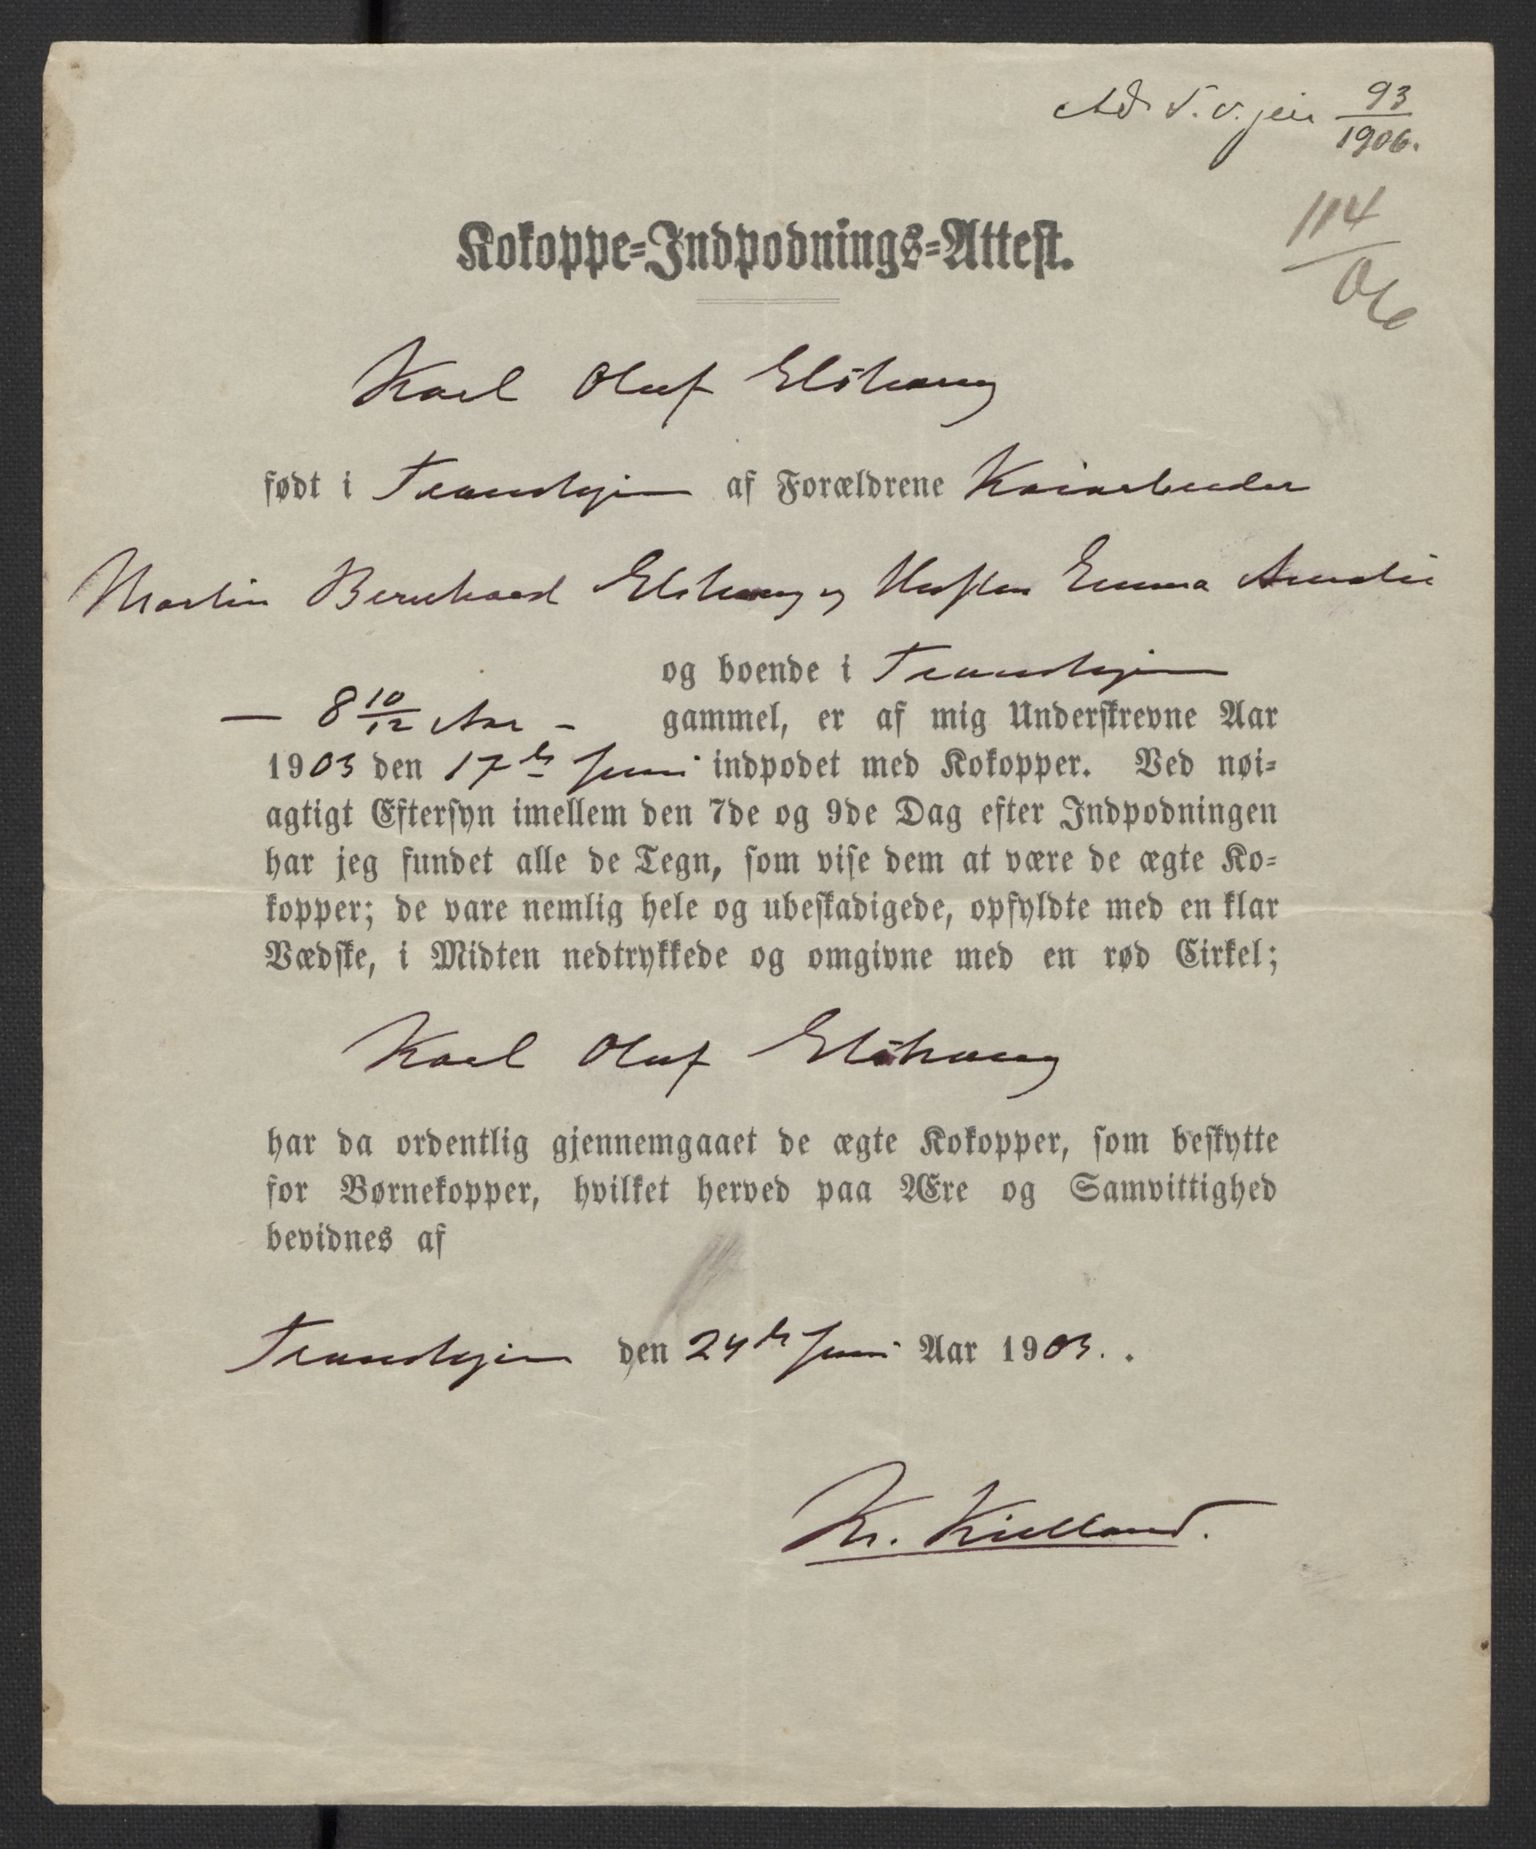 93
1906.
114
06
Kokoppe-Indpodnings-Attest.
Karl Oluf Elshaug
født i Trondhjem af Forældrene Kaiarbeider
Martin Bernhard Elshaug og Hustru Emma Amalie
og boende i Trondhjem
— 8 10/12 Aar — gammel, er af mig Underskrevne Aar
1903 den 17de Juni indpodet med Kokopper. Ved nøi-
agtigt Eftersyn imellem den 7de og 9de Dag efter Indpodningen
har jeg fundet alle de Tegn, som vise dem at være de ægte Ko-
kopper; de vare nemlig hele og ubeskadigede, opfyldte med en klar
Vædske, i Midten nedtrykkede og omgivne med en rød Cirkel;
Karl Oluf Elshaug
har da ordentlig gjennemgaaet de ægte Kokopper, som beskytte
for Børnekopper, hvilket herved paa Ære og Samvittighed
bevidnes af
Trondhjem den 24de Juni Aar 1903. .
Kr. Kielland.